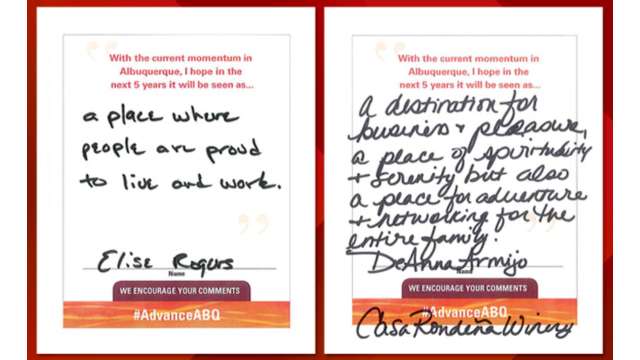 With the current momentum in
Albuquerque, I hope in the
next 5 years it will be seen as...
a place where
people are proud
to live and work.
Elise Rogers
Name
WE ENCOURAGE YOUR COMMENTS
#AdvanceABQ
With the current momentum in
Albuquerque, I hope in the
next 5 years it will be seen as...
A destination for
business + pleasure,
a place of spirituality
+ serenity but also
a place for adventure
+ networking for the
entire family.
DeAnna Armijo
Name
WE ENCOURAGE YOUR COMMENTS
#AdvanceABQ
Casa Rondeña Winery